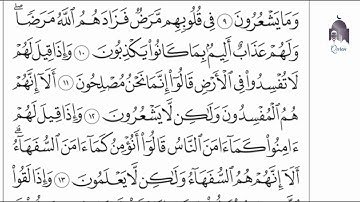 وَمَا يَشْعُرُونَ ٩ فِى قُلُوبِهِم مَّرَضٌ فَزَادَهُمُ ٱللَّهُ مَرَضًا ۖ
وَلَهُمْ عَذَابٌ أَلِيمٌۢ بِمَا كَانُوا۟ يَكْذِبُونَ ١٠ وَإِذَا قِيلَ لَهُمْ
لَا تُفْسِدُوا۟ فِى ٱلْأَرْضِ قَالُوٓا۟ إِنَّمَا نَحْنُ مُصْلِحُونَ ١١ أَلَآ إِنَّهُمْ
هُمُ ٱلْمُفْسِدُونَ وَلَـٰكِن لَّا يَشْعُرُونَ ١٢ وَإِذَا قِيلَ لَهُمْ
ءَامِنُوا۟ كَمَآ ءَامَنَ ٱلنَّاسُ قَالُوٓا۟ أَنُؤْمِنُ كَمَآ ءَامَنَ ٱلسُّفَهَآءُ ۗ
أَلَآ إِنَّهُمْ هُمُ ٱلسُّفَهَآءُ وَلَـٰكِن لَّا يَعْلَمُونَ ١٣ وَإِذَا لَقُوا۟